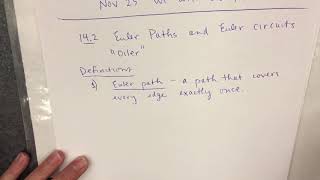 Nov 25
14.2 Euler Paths and Euler Circuits
"Oiler"
Definitions
1) Euler path - a path that covers
every edge exactly once.